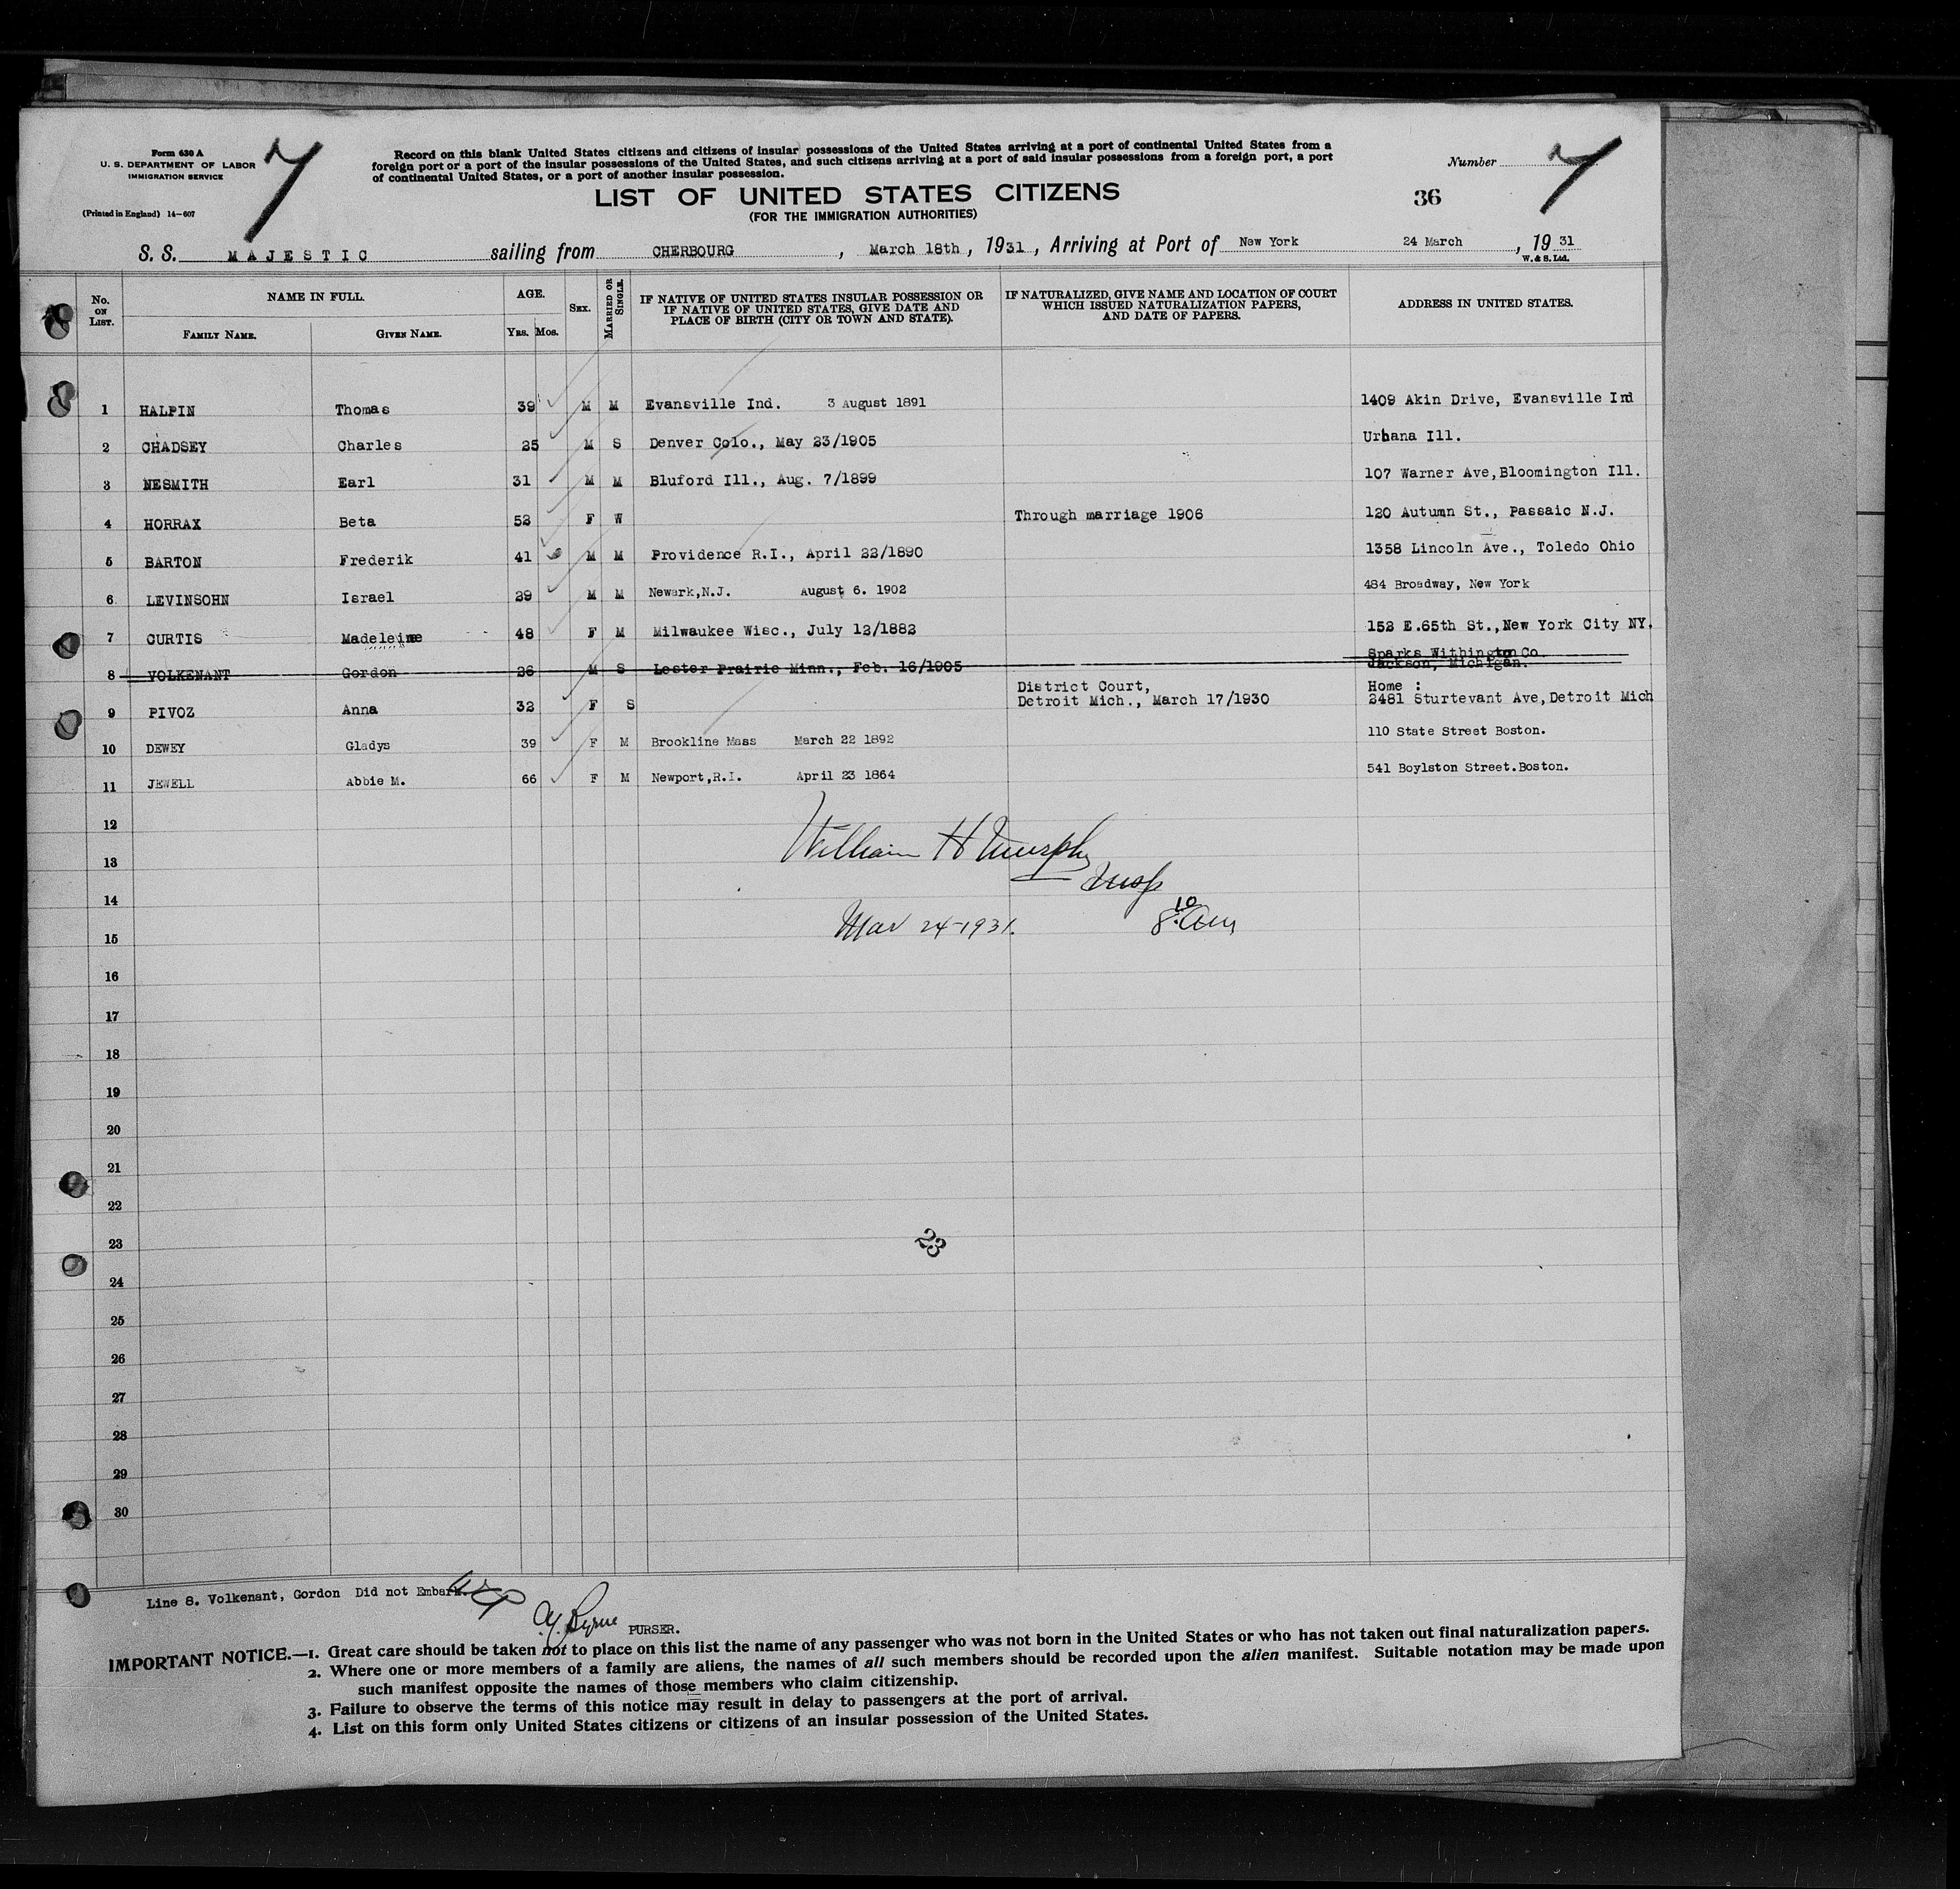 Form 630 A
U. S. DEPARTMENT OF LABOR
IMMIGRATION SERVICE
(Printed in England) 14-607
7
Record on this blank United States citizens and citizens of insular possessions of the United States arriving at a port of continental United States from a
foreign port or a port of the insular possessions of the United States, and such citizens arriving at a port of said insular possessions from a foreign port, a port
of continental United States, or a port of another insular possession.
LIST OF UNITED STATES CITIZENS
(FOR THE IMMIGRATION AUTHORITIES)
Number 7
36
S. S. MAJESTIC sailing from CHERBOURG, March 18th, 1931, Arriving at Port of New York 24 March, 1931
W. & S. Ltd.
No. ON LIST. NAME IN FULL. AGE. SEX. MARRIED OR SINGLE. IF NATIVE OF UNITED STATES INSULAR POSSESSION OR IF NATIVE OF UNITED STATES, GIVE DATE AND PLACE OF BIRTH (CITY OR TOWN AND STATE). IF NATURALIZED, GIVE NAME AND LOCATION OF COURT WHICH ISSUED NATURALIZATION PAPERS, AND DATE OF PAPERS. ADDRESS IN UNITED STATES.
FAMILY NAME. GIVEN NAME. YRS. MOS.
1 HALPIN Thomas 39 M M Evansville Ind. 3 August 1891 1409 Akin Drive, Evansville Ind
2 CHADSEY Charles 25 M S Denver Colo., May 23/1905 Urbana Ill.
3 NESMITH Earl 31 M M Bluford Ill., Aug. 7/1899 107 Warner Ave, Bloomington Ill.
4 HORRAX Beta 52 F W Through marriage 1906 120 Autumn St., Passaic N.J.
5 BARTON Frederik 41 M M Providence R.I., April 22/1890 1358 Lincoln Ave., Toledo Ohio
6 LEVINSOHN Israel 29 M M Newark,N.J. August 6. 1902 484 Broadway, New York
7 CURTIS Madeleine 48 F M Milwaukee Wisc., July 12/1882 152 E.65th St.,New York City NY.
8 VOLKENANT Gordon 26 M S Lester Prairie Minn., Feb. 16/1905 Sparks Withington Co.
Jackson, Michigan.
9 PIVOZ Anna 32 F S District Court,
Detroit Mich., March 17/1930 Home :
2481 Sturtevant Ave, Detroit Mich
10 DEWEY Gladys 39 F M Brookline Mass March 22 1892 110 State Street Boston.
11 JEWELL Abbie M. 66 F M Newport,R.I. April 23 1864 541 Boylston Street.Boston.
12
William H Murphy
13
Insp
14
Mar 24-1931. 8.10 Am
15
16
17
18
19
20
21
22
23
23
24
25
26
27
28
29
30
Line 8. Volkenant, Gordon Did not Embark.
Byrne PURSER.
IMPORTANT NOTICE.—1. Great care should be taken not to place on this list the name of any passenger who was not born in the United States or who has not taken out final naturalization papers.
2. Where one or more members of a family are aliens, the names of all such members should be recorded upon the alien manifest. Suitable notation may be made upon
such manifest opposite the names of those members who claim citizenship.
3. Failure to observe the terms of this notice may result in delay to passengers at the port of arrival.
4. List on this form only United States citizens or citizens of an insular possession of the United States.